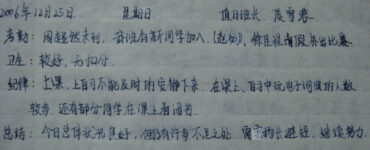 2006年12月25日 星期日 值日班长 段雪蓉
考勤：周超然未到。我班有新同学加入（赵剑），徐佳佳请假外出比赛
卫生：较好，未扣分。
纪律：上课、上自习不能及时的安静下来，在课上、自习中玩电子词典的人数
较多，还有部分同学在课上看闲书。
总结：今日总体状况良好，但仍有许多不足之处，需要扬长避短，继续努力